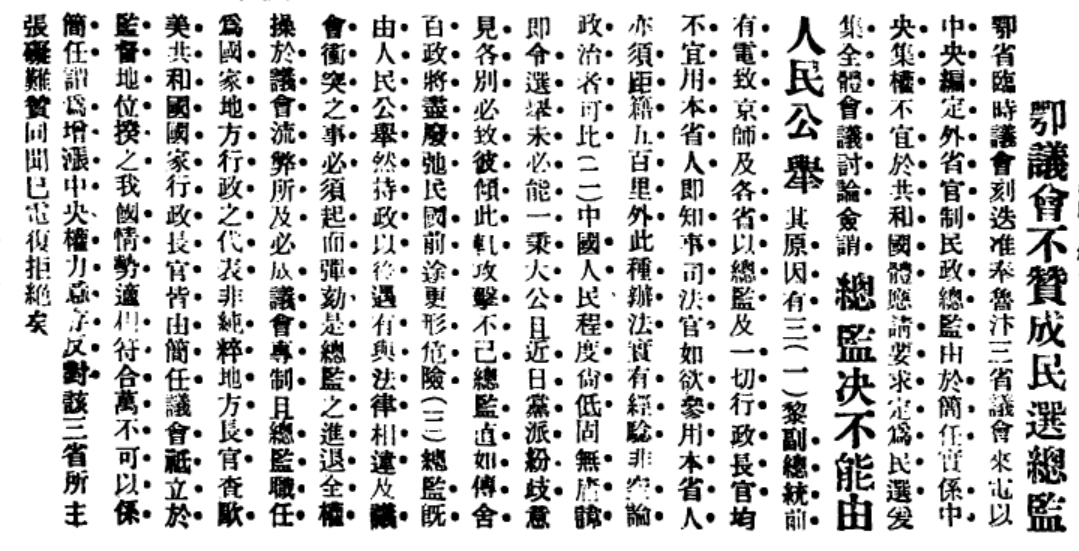 鄂議會不贊成民選總監
鄂省臨時議會刻迭准奉魯汴三省議會來電以
中央編定外省官制民政總監由於簡任實係中
央集權不宜於共和國體應請要求定爲民選爰
集全體會議討論僉謂總監决不能由
人民公舉其原因有三(一)黎副總統前
有電致京師及各省以總監及一切行政長官均
不宜用本省人即知事司法官如欲參用本省人
亦須距籍五百里外此種辦法實有經驗非空論
政治者可比(二)中國人民程度尙低固無庸諱
即令選舉未必能一秉大公且近日黨派紛歧意
見各別必致彼傾此軋攻擊不已總監直如傳舍
百政將盡廢弛民國前途更形危險(三)總監旣
由人民公舉然持政以後遇有與法律相違及議
會衝突之事必須起而彈劾是總監之進退全權
操於議會流弊所及必成議會專制且總監職任
爲國家地方行政之代表非純粹地方長官查歐
美共和國國家行政長官皆由簡任議會祇立於
監督地位揆之我國情勢適相符合萬不可以係
簡任謂爲增漲中央權力意存反對該三省所主
張礙難贊同聞已電復拒絶矣